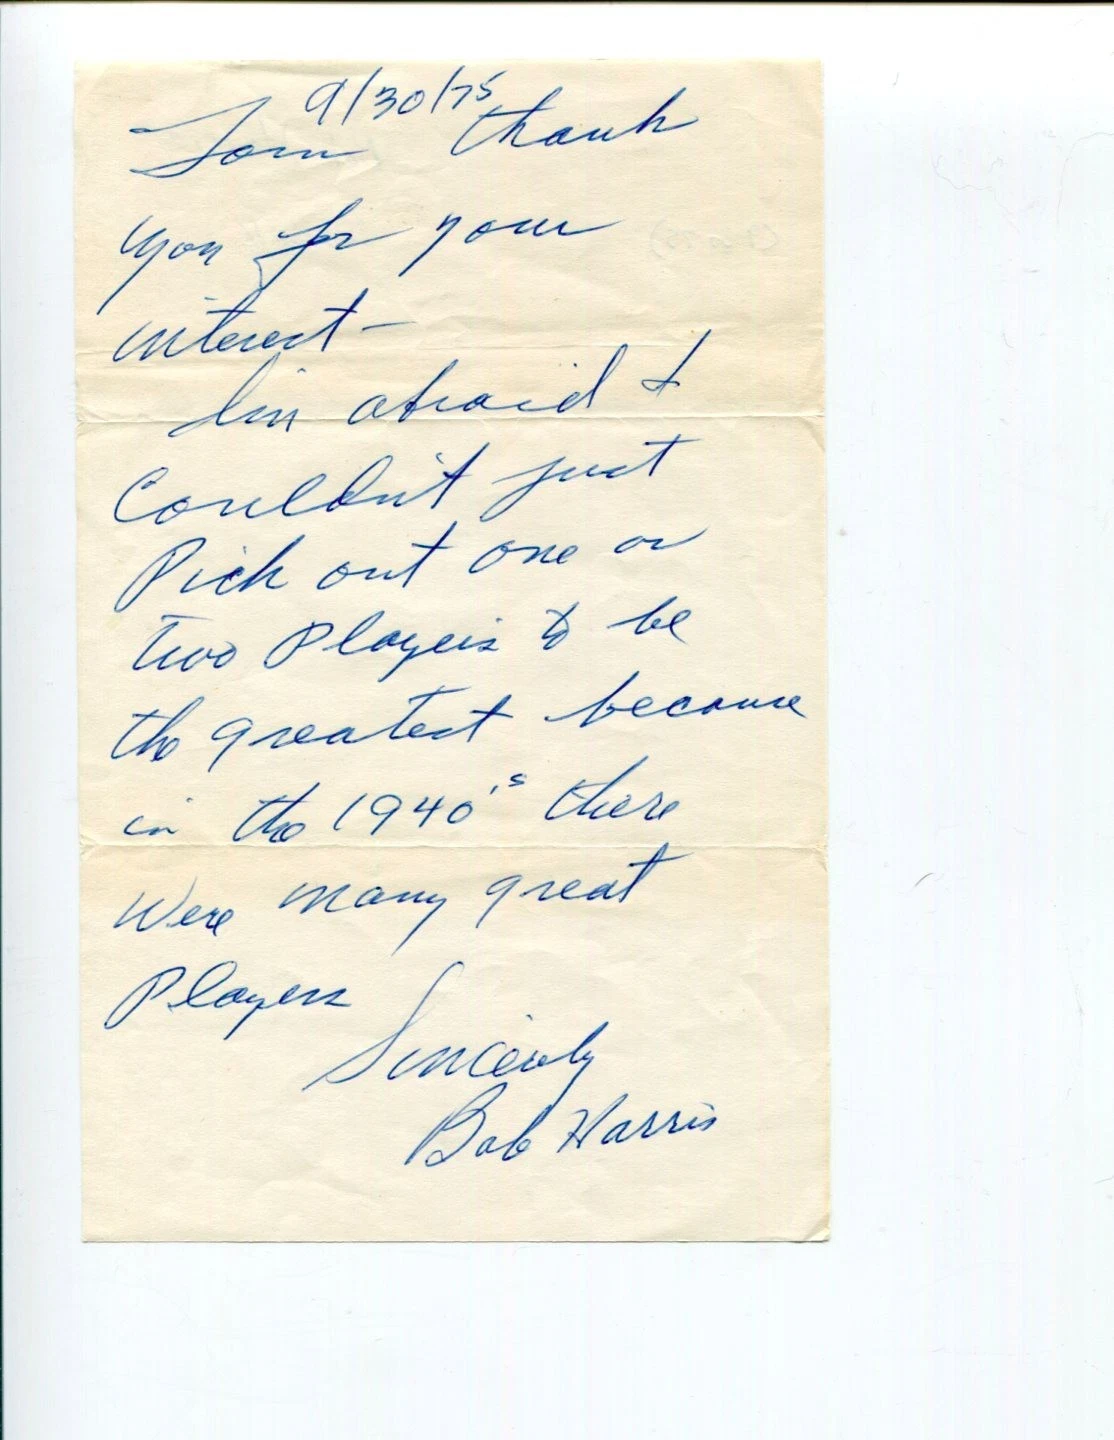 9/30/75
Tom thank
you for your
interest —
I'm afraid I
Couldn't just
Pick out one or
two Players to be
the greatest because
in the 1940's there
Were many great
Players
Sincerly
Bob Harris